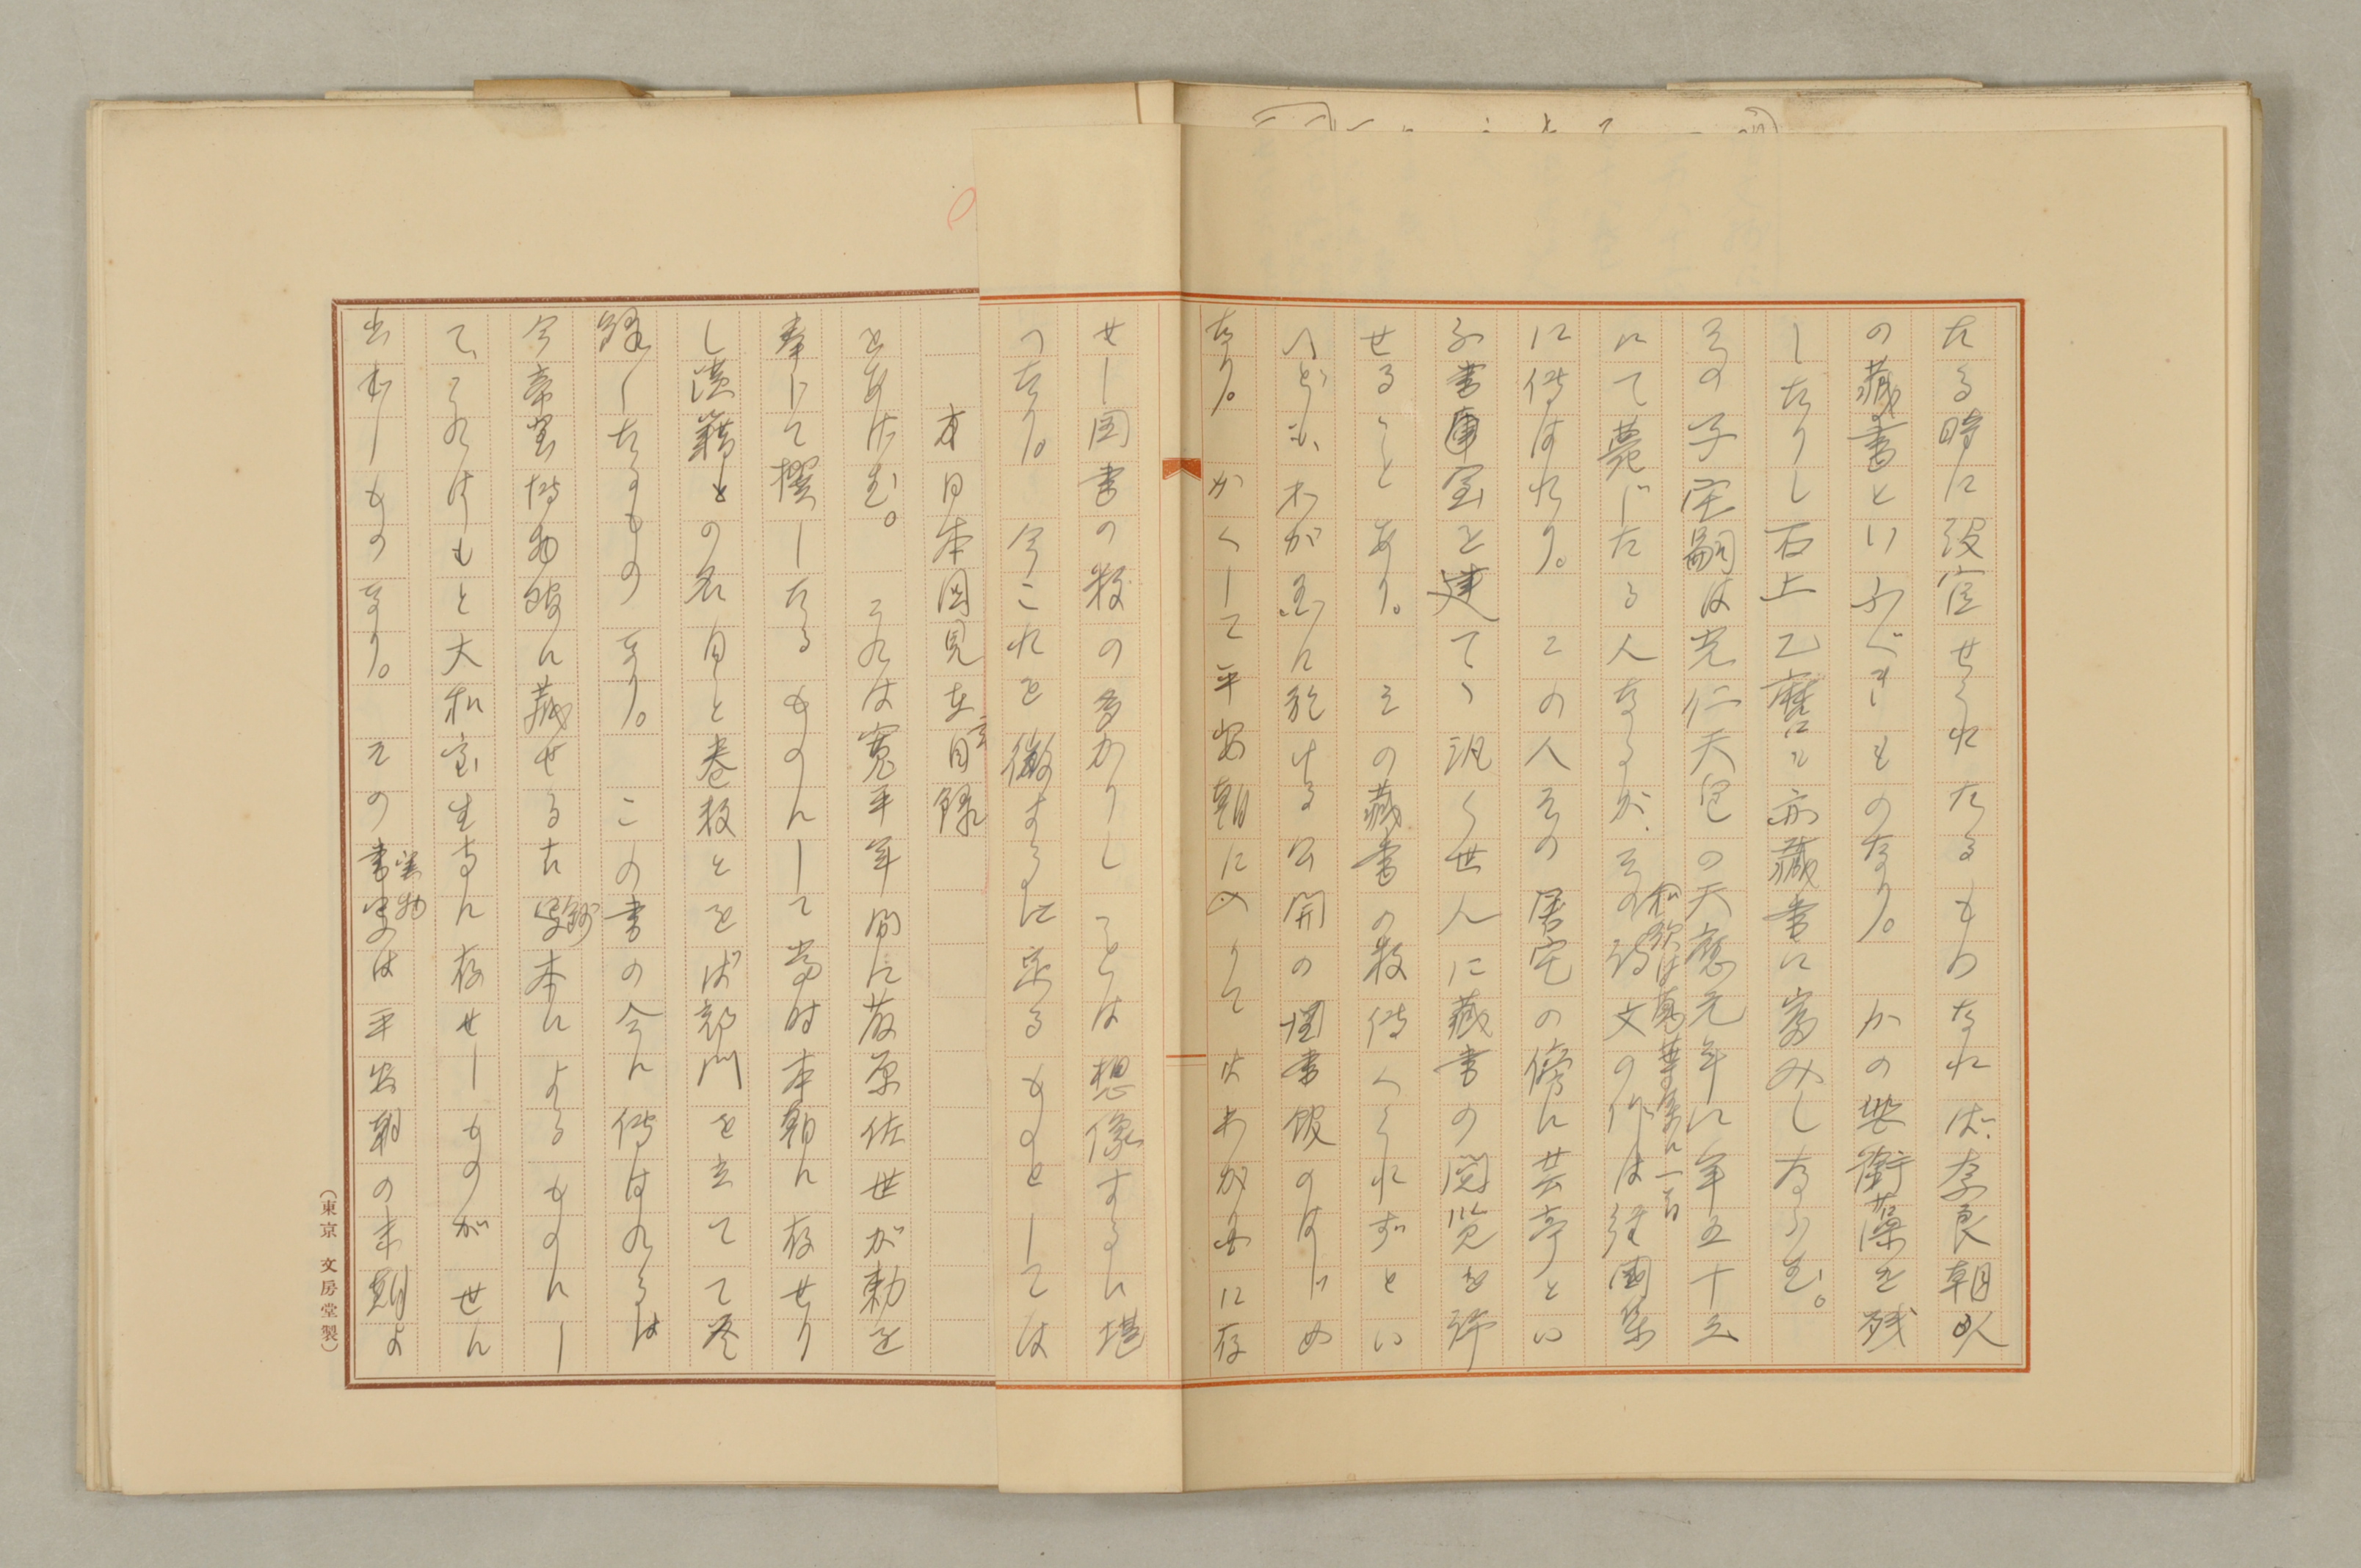 たる時に設定せられたるものなれば、奈良朝人
の藏書といふべきものなり。かの典衛藻を残
したりし石上乙麿も亦藏書に富みしならむ。
その子宅嗣は光仁天皇の天應元年に年五十三
にて薨じたる人なるが、その詩文の作は經國集
和歌は萬葉集に一首
に傳はれり。この人その居宅の傍に芸亭とい
ふ書庫室を建て、汎く世人に藏書の閲覧を許
せることあり。その藏書の数傳へられずとい
へども、わが国に於ける公開の図書館のはじめ
なり。かくして平安朝に入りてはわが国に存
せし図書の数の多かりしことは想像するに堪
へたり。今これを徴するに足るものとしては
日本国見在書目録
とあげむ。これは寛平年間に藤原佐世が勅を
奉じて撰したるものにして当時本朝に存せり
し漢籍との名目と巻数とをば部門を立てて登
録したるものなり。この書の今に傳はれるは
今帝室博物館に藏せる古鈔本によるものにし
て、これはもと大和室生寺に存せしものがせに
出でしものなり。その書寫は平安朝の末期よ
実物
(東京 文房堂製)